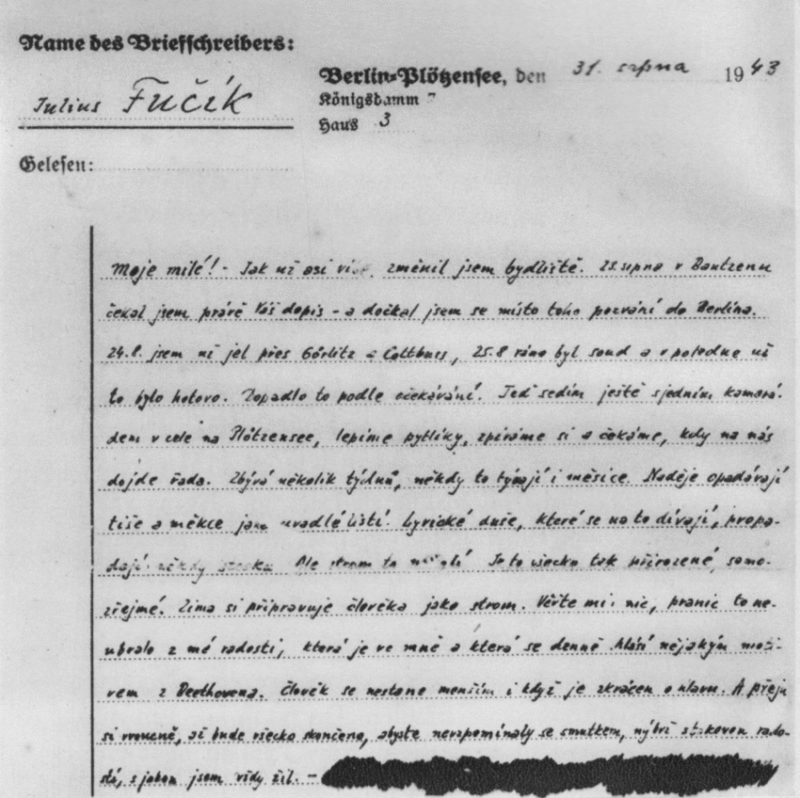 Name des Briefschreibers:
Julius Fučík
Berlin-Plötzensee, den 31. srpna 1943
Königsdamm 7
Haus 3
Gelesen:
Moje milé! - Jak už asi víte, změnil jsem bydliště. 23. srpna v Bautzenu
čekal jsem právě Váš dopis - a dočkal jsem se místo toho pozvání do Berlína.
24.8. jsem už jel přes Görlitz a Cottbus, 25.8 ráno byl soud a v poledne už
to bylo hotovo. Dopadlo to podle očekávání. Teď sedím ještě s jedním kamará-
dem v cele na Plötzensee, lepíme pytlíky, zpíváme si a čekáme, kdy na nás
dojde řada. Zbývá několik týdnů, někdy to bývají i měsíce. Naděje opadávají
tiše a měkce jako uvadlé listí. Lyrické duše, které se na to dívají, propa-
dají někdy stesku. Ale strom to nebolí. Je to všecko tak přirozené, samo-
zřejmé. Zima si připravuje člověka jako strom. Věřte mi: nic, pranic to ne-
ubralo z mé radosti, která je ve mně a která se denně hlásí nějakým moti-
vem z Beethovena. Člověk se nestane menším i když je zkrácen o hlavu. A přeju
si vroucně, až bude všecko skončeno, abyste nevzpomínaly se smutkem, nýbrž s takovou rado-
stí, s jakou jsem vždy žil. -